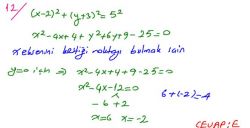 12/
(x-2)²+(y+3)²=5²
x²-4x+4+y²+6y+9-25=0
x eksenini kestiği noktayı bulmak için
y=0 için ⇒ x²-4x+4+9-25=0
x²-4x-12=0
-6 +2
6+(-2)=4
x=6 x=-2
CEVAP:E